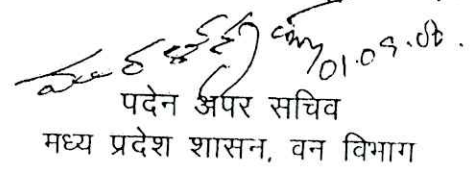 01.09.08.
पदेन अपर सचिव
मध्य प्रदेश शासन, वन विभाग